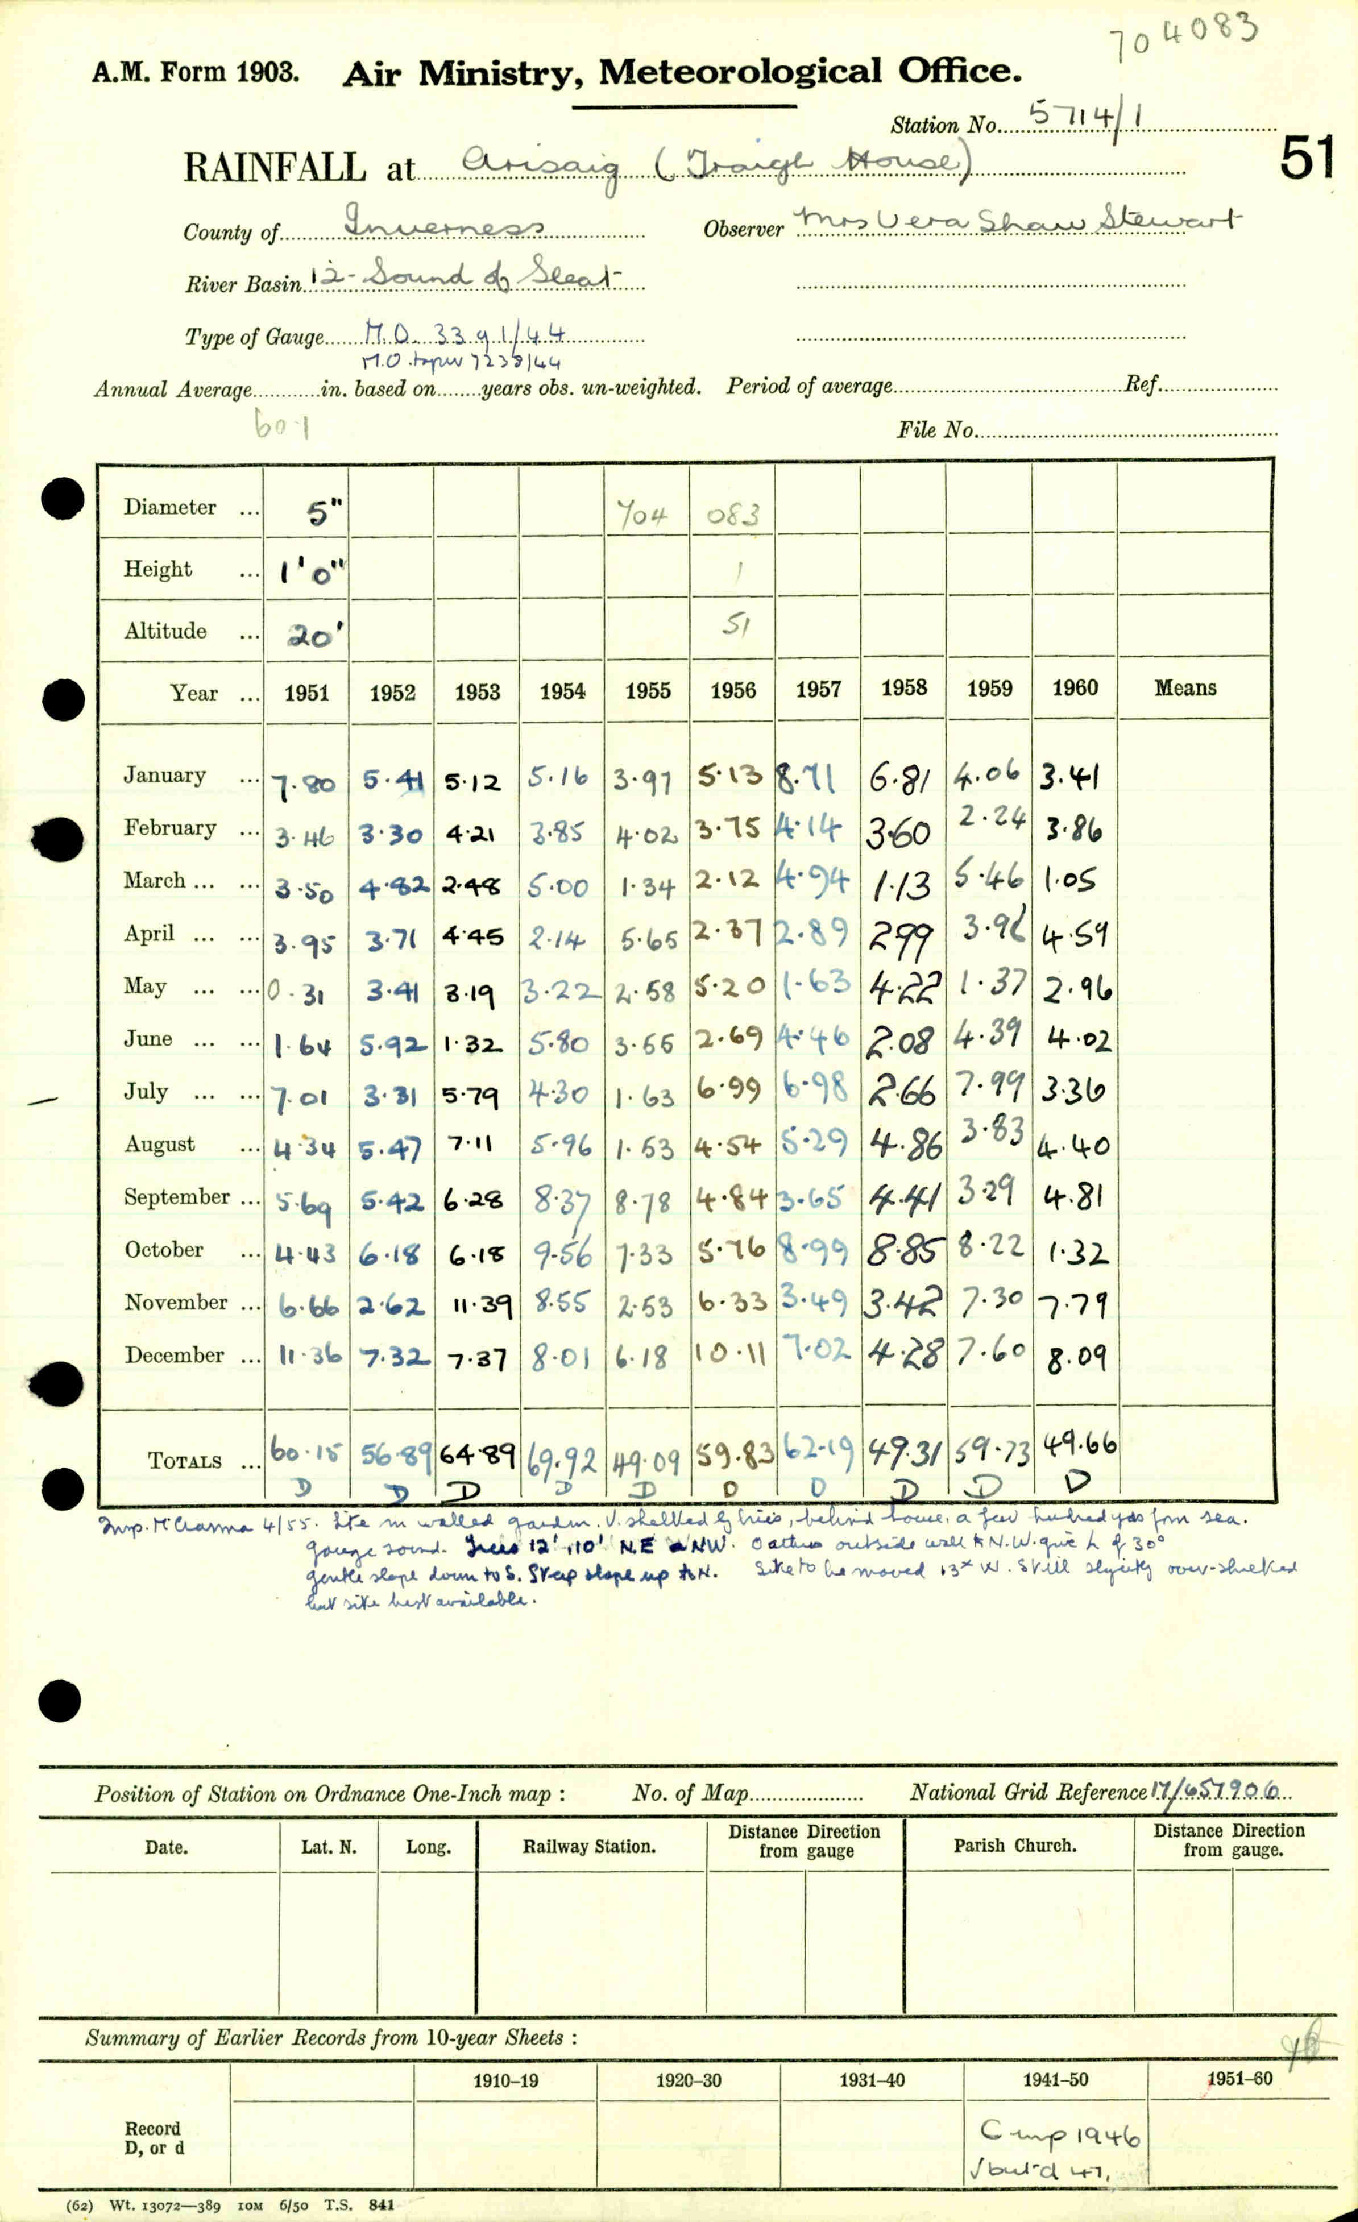 704083
A.M. Form 1903. Air Ministry, Meteorological Office.
Station No. 5714/1
51
RAINFALL at Arisaig (Traigh House)
County of Inverness Observer Mrs Vera Shaw Stewart
River Basin 12- Sound of Sleat
Type of Gauge M.O. 33 9 1/44
M.O. taper 7238/44
Annual Average in. based on years obs. un-weighted. Period of average Ref.
60.1
File No.
Diameter ... 5" 704 083
Height ... 1'0" 1
Altitude ... 20' 51
Year ... 1951 1952 1953 1954 1955 1956 1957 1958 1959 1960 Means
January ... 7.80 5.41 5.12 5.16 3.97 5.13 8.71 6.81 4.06 3.41
February ... 3.46 3.30 4.21 3.85 4.02 3.75 4.14 3.60 2.24 3.86
March ... ... 3.50 4.82 2.48 5.00 1.34 2.12 4.94 1.13 5.46 1.05
April ... ... 3.95 3.71 4.45 2.14 5.65 2.37 2.89 2.99 3.98 4.59
May ... ... 0.31 3.41 3.19 3.22 2.58 5.20 1.63 4.22 1.37 2.96
June ... ... 1.64 5.92 1.32 5.80 3.55 2.69 4.46 2.08 4.39 4.02
July ... ... 7.01 3.31 5.79 4.30 1.63 6.99 6.98 2.66 7.99 3.36
August ... 4.34 5.47 7.11 5.96 1.53 4.54 5.29 4.86 3.83 4.40
September ... 5.69 5.42 6.28 8.37 8.78 4.84 3.65 4.41 3.29 4.81
October ... 4.43 6.18 6.18 9.56 7.33 5.76 8.99 8.85 8.22 1.32
November ... 6.66 2.62 11.39 8.55 2.53 6.33 3.49 3.42 7.30 7.79
December ... 11.36 7.32 7.37 8.01 6.18 10.11 7.02 4.28 7.60 8.09
TOTALS ... 60.15 56.89 64.89 69.92 49.09 59.83 62.19 49.31 59.73 49.66
D D D D D D D D D D
Insp. 4/55. Site in walled garden. V. sheltered by trees, behind house, a few hundred yds from sea.
gauge sound. Trees 12', 10' N.E & NW. outside wall to N.W. give of 30°
gentle slope down to S. Steep slope up to N. Site to be moved W. Still slightly over-sheltered
but site best available.
Position of Station on Ordnance One-Inch map : No. of Map National Grid Reference 17/657906
Date. Lat. N. Long. Railway Station. Distance from Direction gauge Parish Church. Distance from Direction gauge.
Summary of Earlier Records from 10-year Sheets :
1910–19 1920–30 1931–40 1941–50 1951–60
Record D, or d
Comp 1946
(62) Wt. 13072—389 10M 6/50 T.S. 841